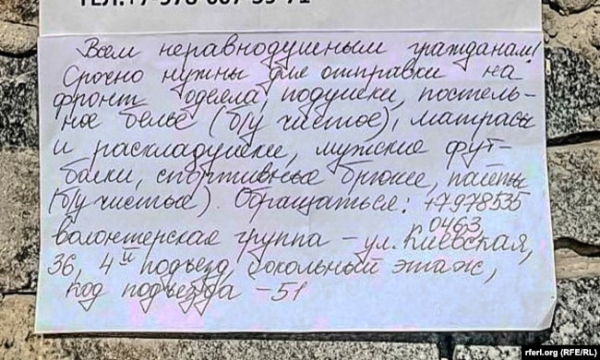 ТЕЛ.:+7-978-607-59-71
Всем неравнодушным гражданам!
Срочно нужны для отправки на
фронт одеяла, подушки, постель-
ное белье (б/у чистое), матрасы
и раскладушки, мужские фут-
болки, спортивные брюки, пакеты
(б/у чистые). Обращаться: +7978535
0463
волонтерская группа – ул. Киевская,
36, 4й подъезд, цокольный этаж,
код подъезда – 51
rferl.org (RFE/RL)